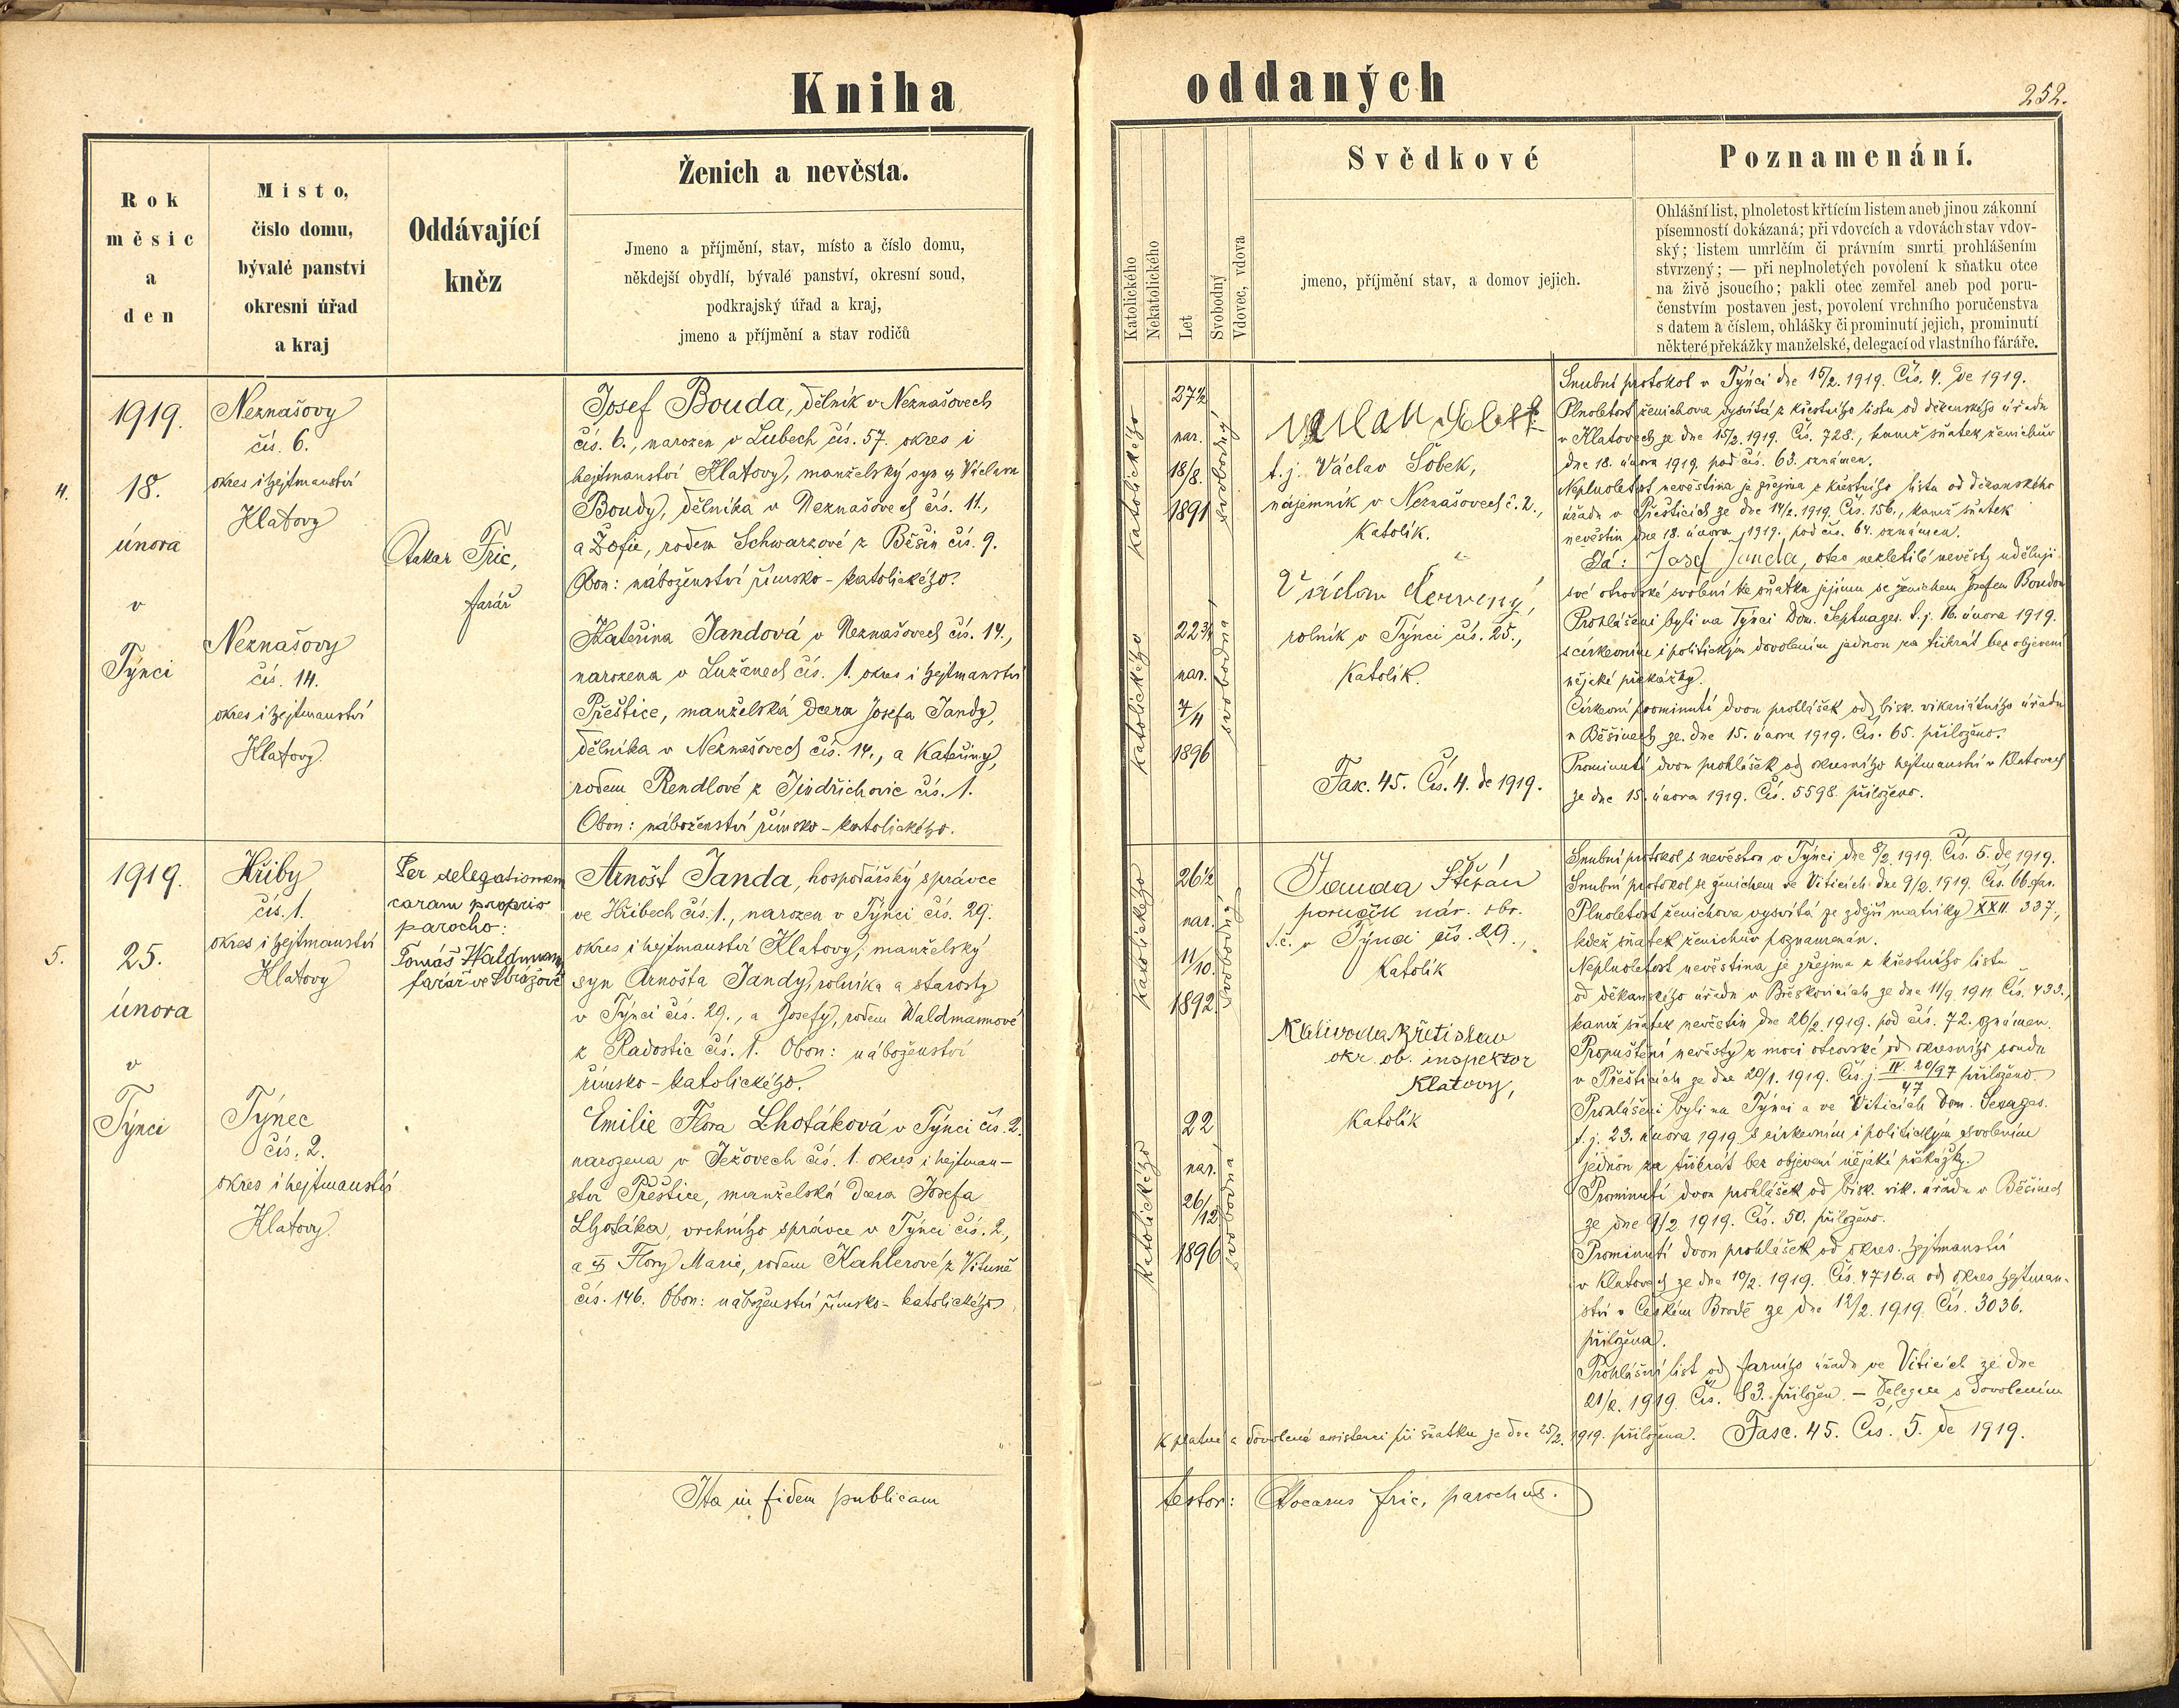 Kniha oddaných
252.
Rok
měsic
a
den
Misto,
čislo domu,
bývalé panství
okresni úřad
a kraj
Oddávající
kněz
Ženich a nevěsta.
Jmeno a příjmění, stav, místo a číslo domu,
někdejší obydlí, bývalé panství, okresní soud,
podkrajský úřad a kraj,
jmeno a příjmění a stav rodičů
Katolického
Nekatolického
Let
Svobodný
Vdovec, vdova
Svědkové
jmeno, příjmění stav, a domov jejich.
Poznamenání.
Ohlášní list, plnoletost křtícím listem aneb jinou zákonní
písemností dokázaná; při vdovcích a vdovách stav vdov-
ský; listem umrlčím či právním smrti prohlášením
stvrzený; — při neplnoletých povolení k sňatku otce
na živě jsoucího; pakli otec zemřel aneb pod poru-
čenstvím postaven jest, povolení vrchního poručenstva
s datem a číslem, ohlášky či prominutí jejich, prominutí
některé překážky manželské, delegací od vlastního fáráře.
4.
1919.
18.
února
v
Týnci
Neznašovy
čís. 6.
okres i hejtmanství
Klatovy
Neznašovy
čís. 14.
okres i hejtmanství
Klatovy.
Otakar Fric,
farář
Josef Bouda, dělník v Neznašovech
čís. 6., narozen v Lubech čís. 57. okres i
hejtmanství Klatovy, manželský syn Václava
Boudy, dělníka v Neznašovech čís. 11.,
a Žofie, rodem Schwarzové z Běšin čís. 9.
Obon: náboženství římsko-katolického.
Kateřina Jandová v Neznašovech čís. 14.,
narozena v Lužanech čís. 1. okres i hejtmanství
Přeštice, manželská dcera Josefa Jandy,
dělníka v Neznašovech čís. 14., a Kateřiny,
rodem Rendlové z Jindřichovic čís. 1.
Obon: náboženství římsko-katolického.
katolického
27½
nar.
18/8.
1891
svobodný
katolického
22¾
nar.
7/4
1896
svobodná
t.j. Václav Šobek,
nájemník v Neznašovech č. 2.,
Katolík.
Václav Červený,
rolník v Týnci čís. 25.,
Katolík.
Fasc. 45. Čís. 4. de 1919.
Snubní protokol v Týnci dne 15/2. 1919. Čís. 4. de 1919.
Plnoletost ženichova vysvítá z křestního listu od děkanského úřadu
v Klatovech ze dne 15/2. 1919. Čís. 728., kamž sňatek ženichův
dne 18. února 1919. pod čís. 63. oznámen.
Neplnoletost nevěstina je zřejma z křestního listu od děkanského
úřadu v Přešticích ze dne 14/2. 1919. Čís. 156., kamž sňatek
nevěstin dne 18. února 1919. pod čís. 64. oznámen.
Já: Josef Janda, otec nezletilé nevěsty uděluji
své otcovské svolení ke sňatku jejímu se ženichem Josefem Boudou
Prohlášeni byli na Týnci Dom. Septuages. t. j. 16. února 1919.
s církevním i politickým dovolením jednou za třikrát bez objevení
nějaké překážky.
Církevní prominutí dvou prohlášek od bisk. vikariátního úřadu
v Běšinech ze dne 15. února 1919. Čís. 65. přiloženo.
Prominutí dvou prohlášek od okresního hejtmanství v Klatovech
ze dne 15. února 1919. Čís. 5598. přiloženo.
5.
1919.
25.
února
v
Týnci
Hřiby
čís. 1.
okres i hejtmanství
Klatovy
Týnec
čís. 2.
okres i hejtmanství
Klatovy.
Per delegationem
caram proprio
parocho:
Tomáš Waldmann
farář ve Zbraslově
Arnošt Janda, hospodářský správce
ve Hřibech čís. 1., narozen v Týnci čís. 29.
okres i hejtmanství Klatovy, manželský
syn Arnošta Jandy, rolníka a starosty
v Týnci čís. 29., a Josefy, rodem Waldmannové
z Radostic čís. 1. Obon: náboženství
římsko-katolického.
Emilie Flora Lhotáková v Týnci čís. 2.
narozena v Ježovech čís. 1. okres i hejtman-
ství Přeštice, manželská dcera Josefa
Lhotáka, vrchního správce v Týnci čís. 2,
a Flory Marie, rodem Kahlerové z Vituně
čís. 146. Obon: náboženství římsko-katolického
katolického
26½
nar.
11/10.
1892.
svobodný
katolického
22
nar.
26/12
1896
svobodná
Janda Štěpán
poručík nár. obr.
t.č. v Týnci čís. 29.,
Katolík
Kalivoda Břetislav
okr. ob. inspektor
Klatovy,
Katolík
Snubní protokol s nevěstou v Týnci dne 8/2. 1919. Čís. 5. de 1919.
Snubní protokol se ženichem ve Viticích dne 9/2. 1919. Čís. 66.
Plnoletost ženichova vysvítá ze zdejší matriky XXII. 337.,
kdež sňatek ženichův poznamenán.
Neplnoletost nevěstina je zřejma z křestního listu
od děkanského úřadu v ze dne 11/9. 1911. Čís. 433.,
kamž sňatek nevěstin dne 26/2. 1919. pod čís. 72. oznámen.
Propuštění nevěsty z moci otcovské od okresního soudu
v Přešticích ze dne 20/1. 1919. Čís. j. IV. 20/97 47 přiloženo.
Prohlášeni byli na Týnci a ve Viticích Dom. Sexages.
t. j. 23. února 1919 s církevním i politickým svolením
jednou za třikrát bez objevení nějaké překážky.
Prominutí dvou prohlášek od bisk. vik. úřadu v Běšinech
ze dne 9/2. 1919. Čís. 50. přiloženo.
Prominutí dvou prohlášek od okres. hejtmanství
v Klatovech ze dne 10/2. 1919. Čís. 4716. a od okres. hejtman-
ství v Českém Brodě ze dne 12/2. 1919. Čís. 3036.
přiložena.
Prohlášní list od farního úřadu ve Viticích ze dne
21/2. 1919. Čís. 83. přiložen. — Delegace s dovolením
k platné a dovolené assistenci při sňatku ze dne 25/2. 1919. přiložena. Fasc. 45. Čís. 5. de 1919.
Ita in fidem publicam testor: Otocarus Fric, parochus.